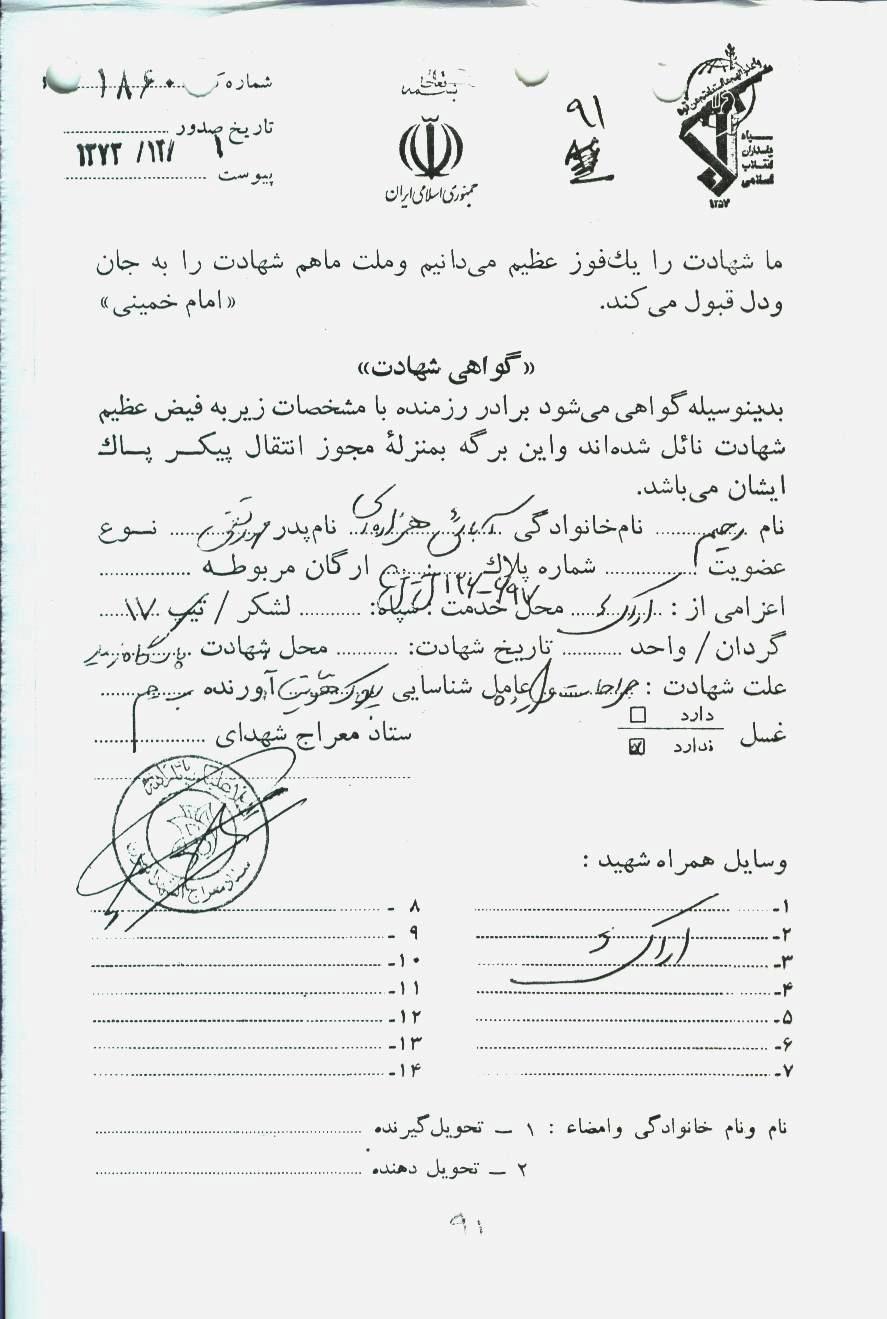 بسمه تعالی
شماره ۱۸۶۰
تاریخ صدور ۱۳۷۳/۱۲/۱
پیوست
جمهوری اسلامی ایران
۹۱
سپاه
پاسداران
انقلاب
اسلامی
۱۳۵۷
ما شهادت را یك فوز عظیم می‌دانیم وملت ماهم شهادت را به جان
ودل قبول می‌کند. «امام خمینی»
«گواهی شهادت»
بدینوسیله گواهی می‌شود برادر رزمنده با مشخصات زیر به فیض عظیم
شهادت نائل شده‌اند واین برگه بمنزلهٔ مجوز انتقال پیکر پاك
ایشان می‌باشد.
نام رحیم نام‌خانوادگی نام‌پدر نوع
عضویت شماره پلاك ارگان مربوطه
اعزامی از : اراک محل خدمت : سپاه: لشکر / تیپ ۱۷
گردان / واحد تاریخ شهادت: محل شهادت
علت شهادت : عامل شناسایی آورنده
غسل دارد
ندارد
ستاد معراج شهدای
وسایل همراه شهید :
۱ـ ۸ ـ
۲ـ ۹ ـ
اراک
۳ـ ۱۰ـ
۴ـ ۱۱ـ
۵ـ ۱۲ـ
۶ـ ۱۳ـ
۷ـ ۱۴ـ
نام ونام خانوادگی وامضاء : ۱ ـ تحویل‌گیرنده
۲ ـ تحویل دهنده
۹۱